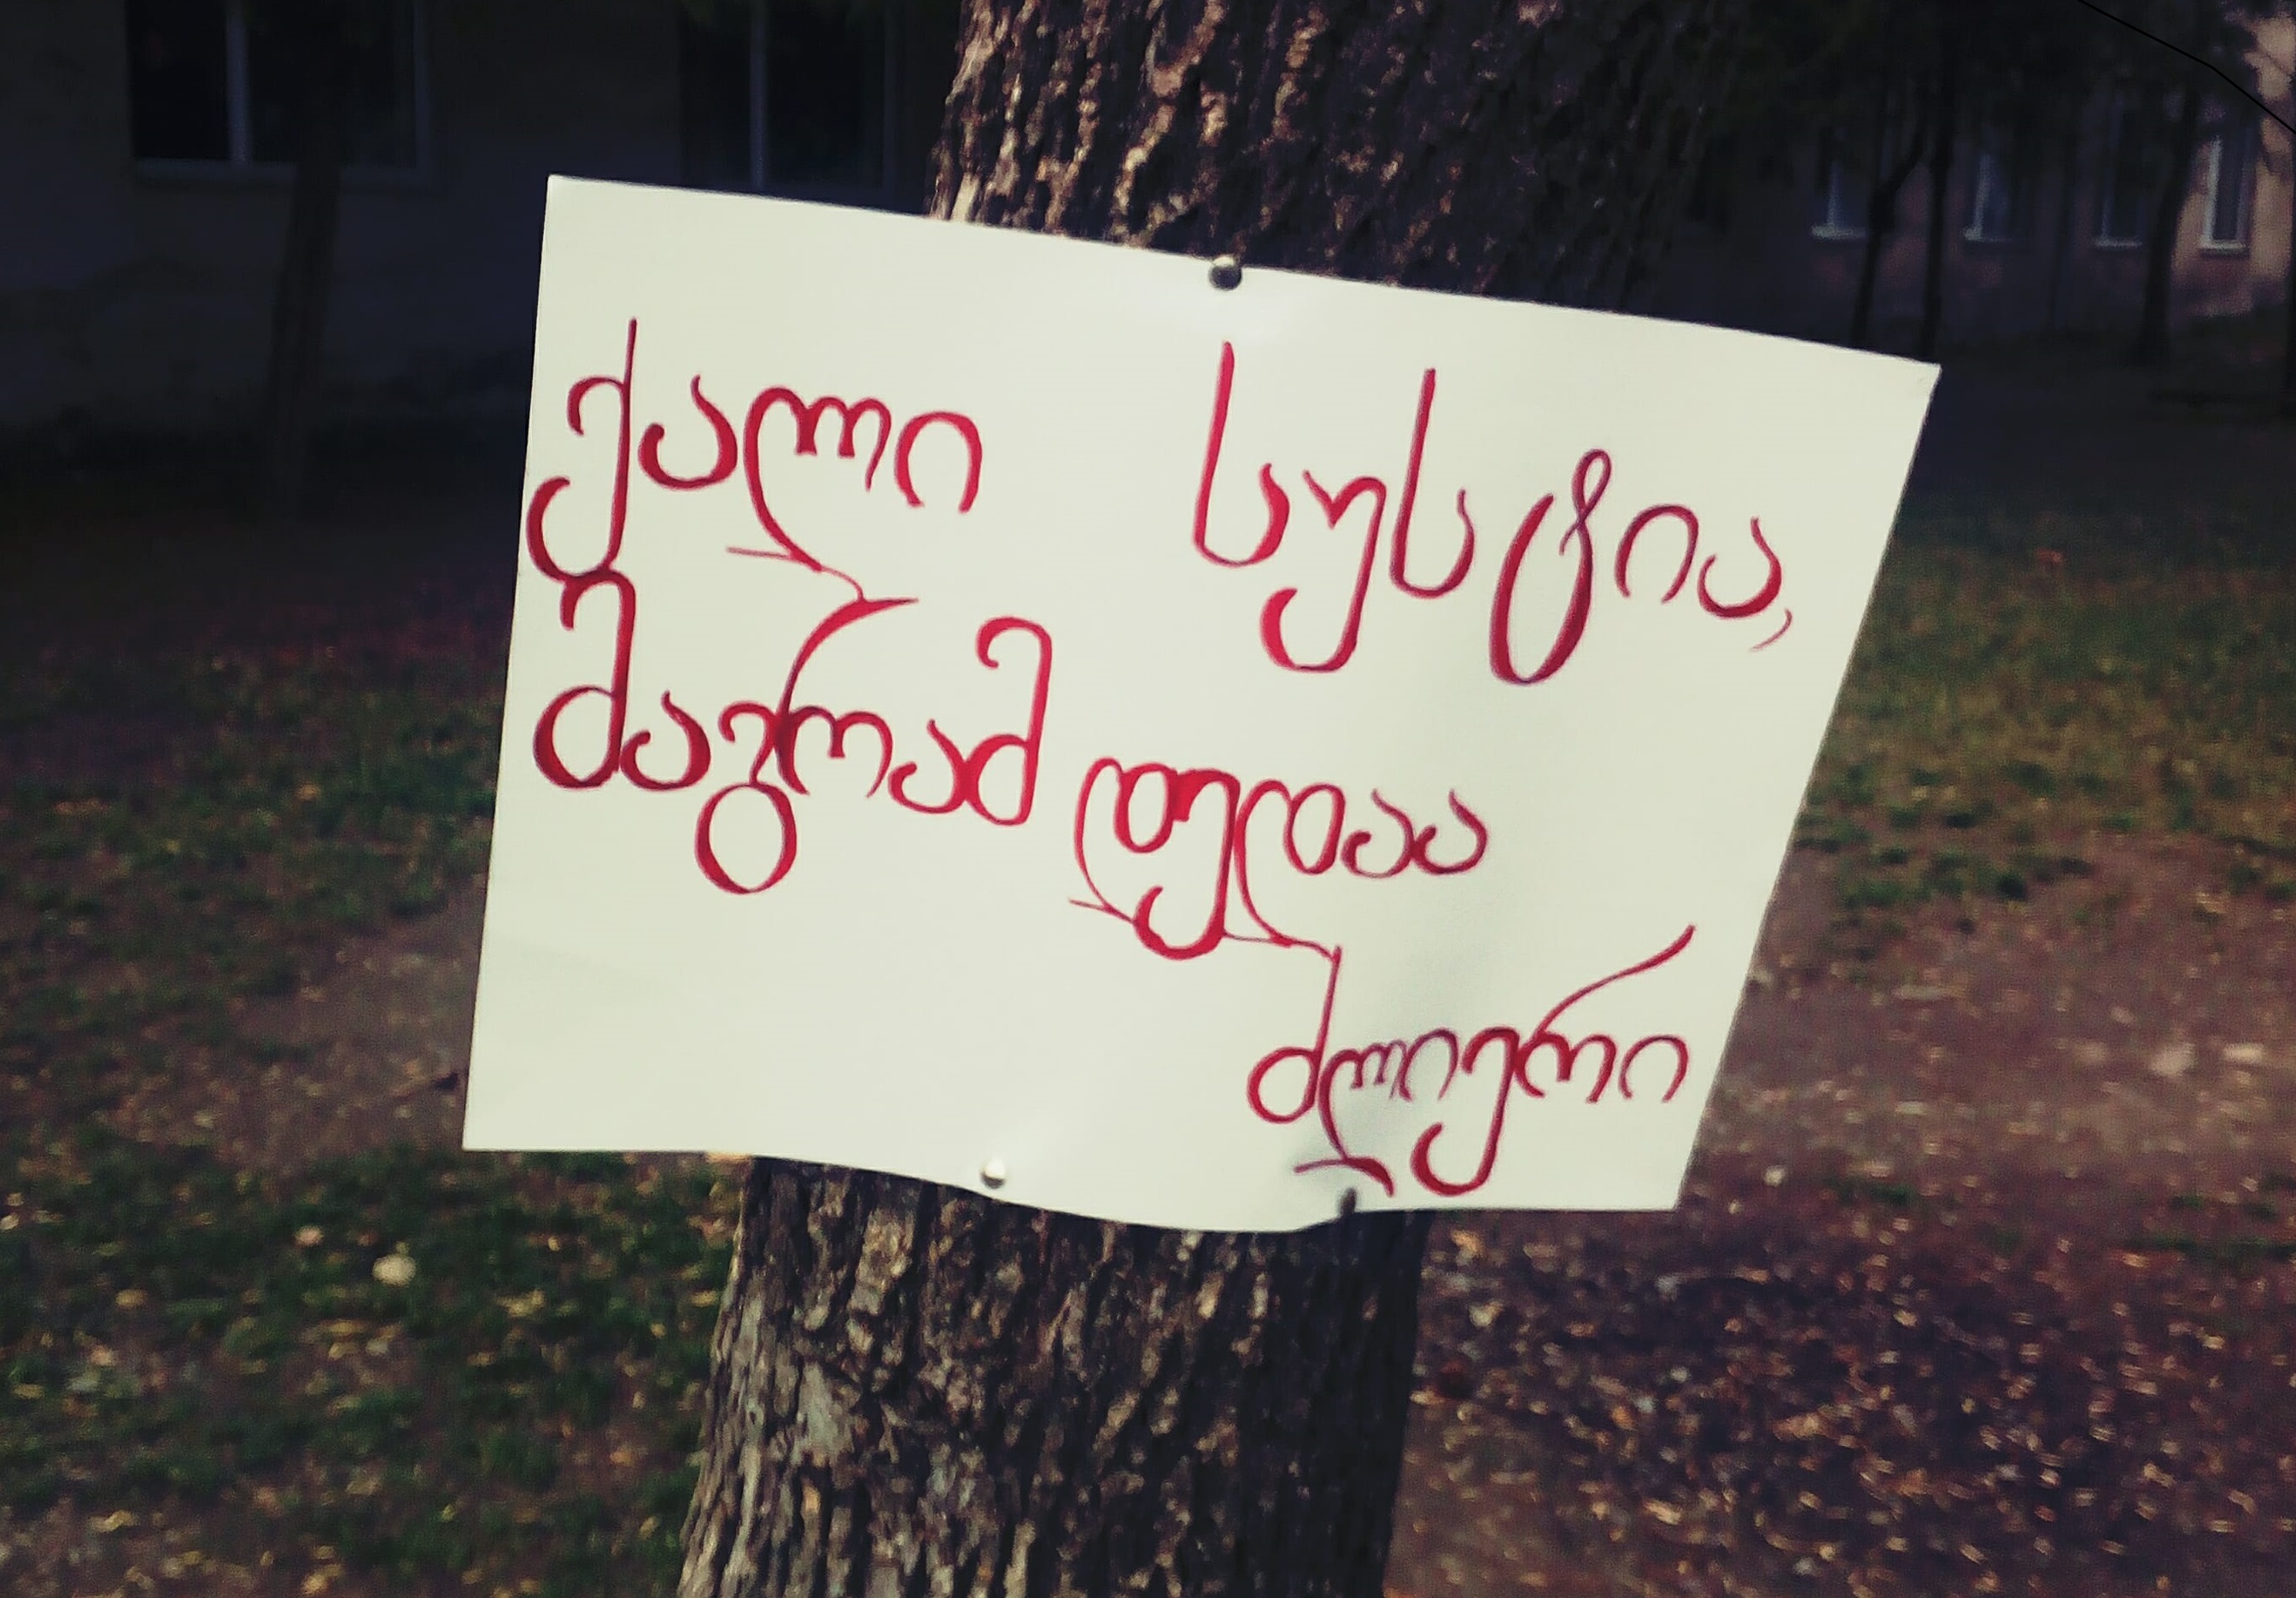 ქალი სუსტია,
მაგრამ დედაა
ძლიერი